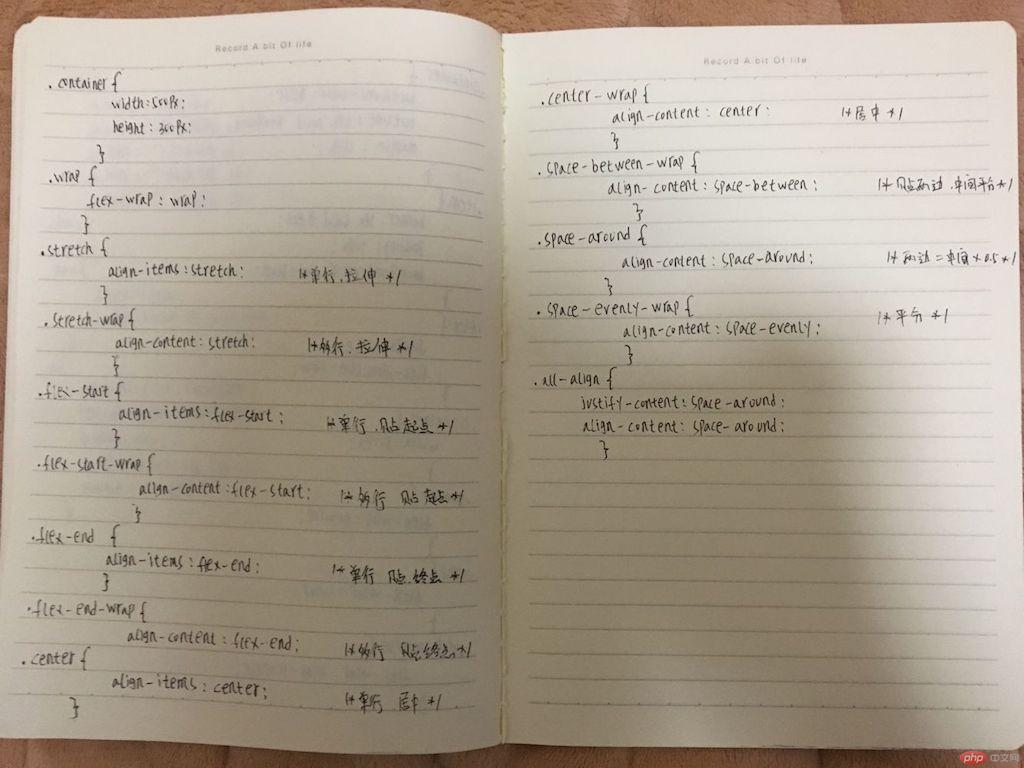 Record A bit Of life
.container {
width:500px;
height:300px;
}
.wrap {
flex-wrap:wrap;
}
.stretch {
align-items:stretch; /*单行.拉伸 */
}
.stretch-wrap{
align-content:stretch; /*多行.拉伸 */
}
.flex-start {
align-items:flex-start; /*单行 贴起点 */
}
.flex-start-wrap{
align-content:flex-start; /*多行 贴起点 */
}
.flex-end {
align-items:flex-end; /*单行 贴终点 */
}
.flex-end-wrap {
align-content:flex-end; /*多行 贴终点 */
.center {
align-items:center; /*单行 居中 */
}
Record A bit Of life
.center-wrap {
align-content: center; /*居中 */
}
.space-between-wrap {
align-content:space-between; /*贴两边.中间平分 */
}
.space-around {
align-content:space-around; /*两边=中间×0.5 */
}
.space-evenly-wrap{
align-content:space-evenly; /*平分 */
}
.all-align {
justify-content:space-around;
align-content:space-around;
}
php 中文网